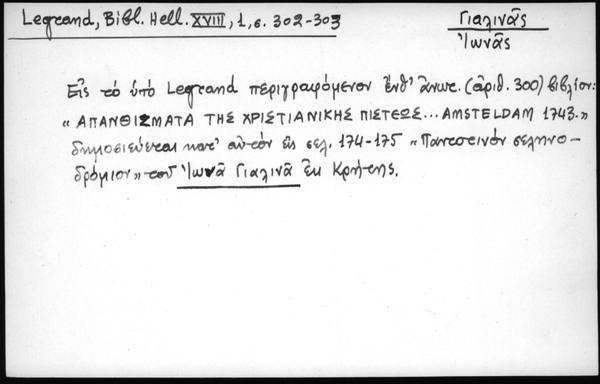 Legrand, Bibl. Hell. XVIII, 1, σ. 302-303
Γιαλινᾶς
Ἰωνᾶς
Εἰς τὸ ὑπὸ Legrand περιγραφόμενον ἔνθ' ἄνωτ. (ἀριθ. 300) βιβλίον:
"ΑΠΑΝΘΙΣΜΑΤΑ ΤΗΣ ΧΡΙΣΤΙΑΝΙΚΗΣ ΠΙΣΤΕΩΣ... AMSTELDAM 1743."
δημοσιεύεται κατ' αὐτὸν εἰς σελ. 174-175 "Παντοτινὸν σεληνο-
δρόμιον" τοῦ Ἰωνᾶ Γιαλινᾶ ἐκ Κρήτης.